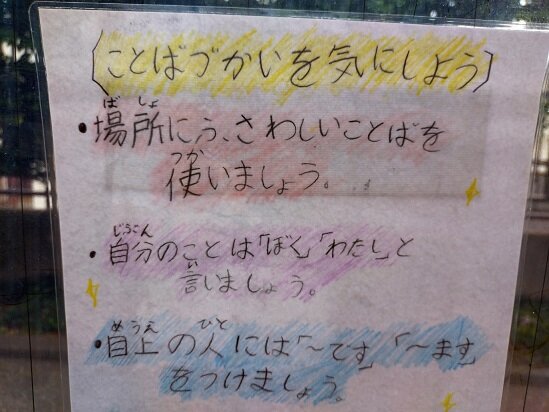 (ことばづかいを気にしよう)
ばしょ
・場所にふさわしいことばを
つか
使いましょう。
じぶん
・自分のことは「ぼく」「わたし」と
い
言いましょう。
めうえ ひと
・目上の人には「〜です」「〜ます」
をつけましょう。